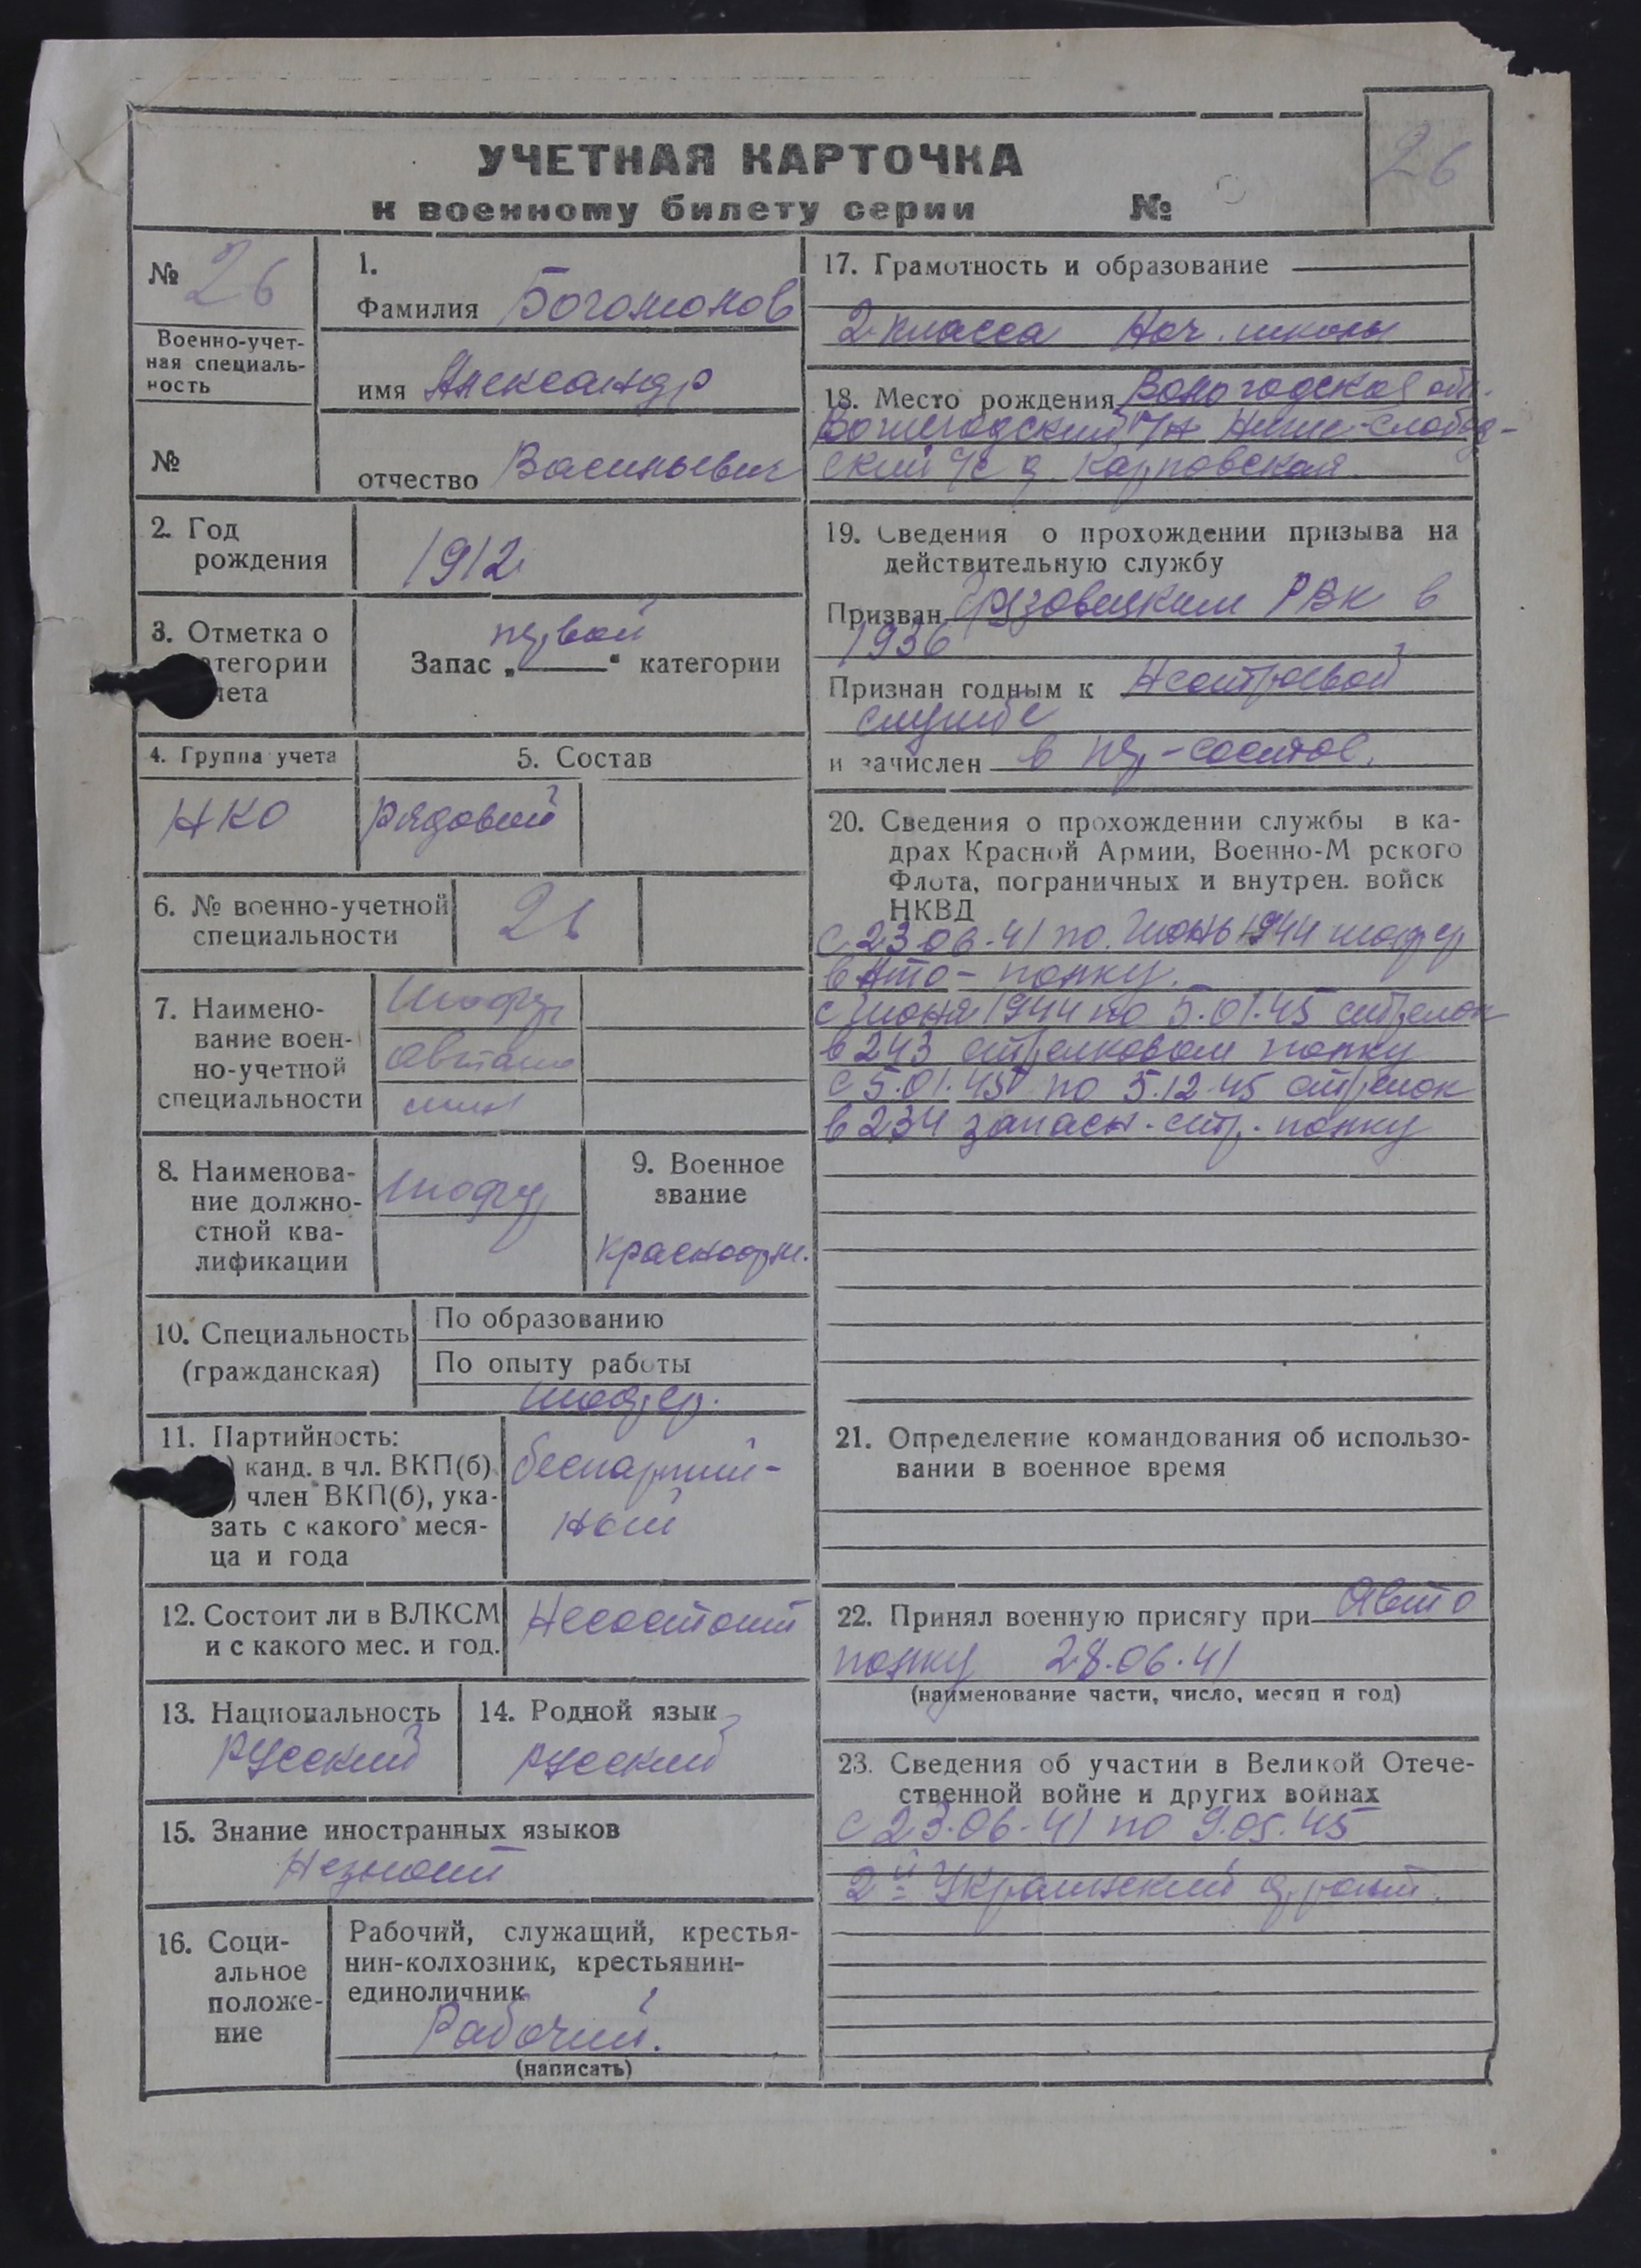 26
УЧЕТНАЯ КАРТОЧКА
к военному билету серии №
№ 26
Военно-учет-
ная специаль-
ность
№
1.
Фамилия Богомолов
имя Александр
отчество Васильевич
2. Год
рождения
1912
3. Отметка о
атегории
чета
первой
Запас „ “ категории
4. Группа учета
НКО
5. Состав
Рядовой
6. № военно-учетной
специальности
26
7. Наимено-
вание воен-
но-учетной
специальности
Шофер
автома
шин
8. Наименова-
ние должно-
стной ква-
лификации
Шофер
9. Военное
звание
красноарм.
10. Специальность
(гражданская)
По образованию
По опыту работы
шофер.
11. Партийность:
) канд. в чл. ВКП(б)
) член ВКП(б), ука-
зать с какого меся-
ца и года
беспартий-
ный
12. Состоит ли в ВЛКСМ
и с какого мес. и год.
Несостоит
13. Национальность
Русский
14. Родной язык
русский
15. Знание иностранных языков
Незнает
16. Соци-
альное
положе-
ние
Рабочий, служащий, крестья-
нин-колхозник, крестьянин-
единоличник
Рабочий.
(написать)
17. Грамотность и образование
2 класса Нач. школы
18. Место рождения Вологодская обл.
Вожегодский р/н Ниже-Слобод-
ский с/с д Карповская
19. Сведения о прохождении призыва на
действительную службу
Призван Грязовецким РВК в
1936
Признан годным к Нестроевой
службе
и зачислен в пер-состав.
20. Сведения о прохождении службы в ка-
драх Красной Армии, Военно-М рского
Флота, пограничных и внутрен. войск
НКВД
с 23.06.41 по Июнь 1944 шофер
в Авто-полку.
с июня 1944 по 5.01.45 стрелок
в 243 стрелковом полку
с 5.01.45 по 5.12.45 стрелок
в 234 запасн. стр. полку
21. Определение командования об использо-
вании в военное время
22. Принял военную присягу при Авто
полку 28.06.41
(наименование части, число, месяц и год)
23. Сведения об участии в Великой Отече-
ственной войне и других войнах
с 23.06.41 по 9.05.45
2й Украинский фронт.